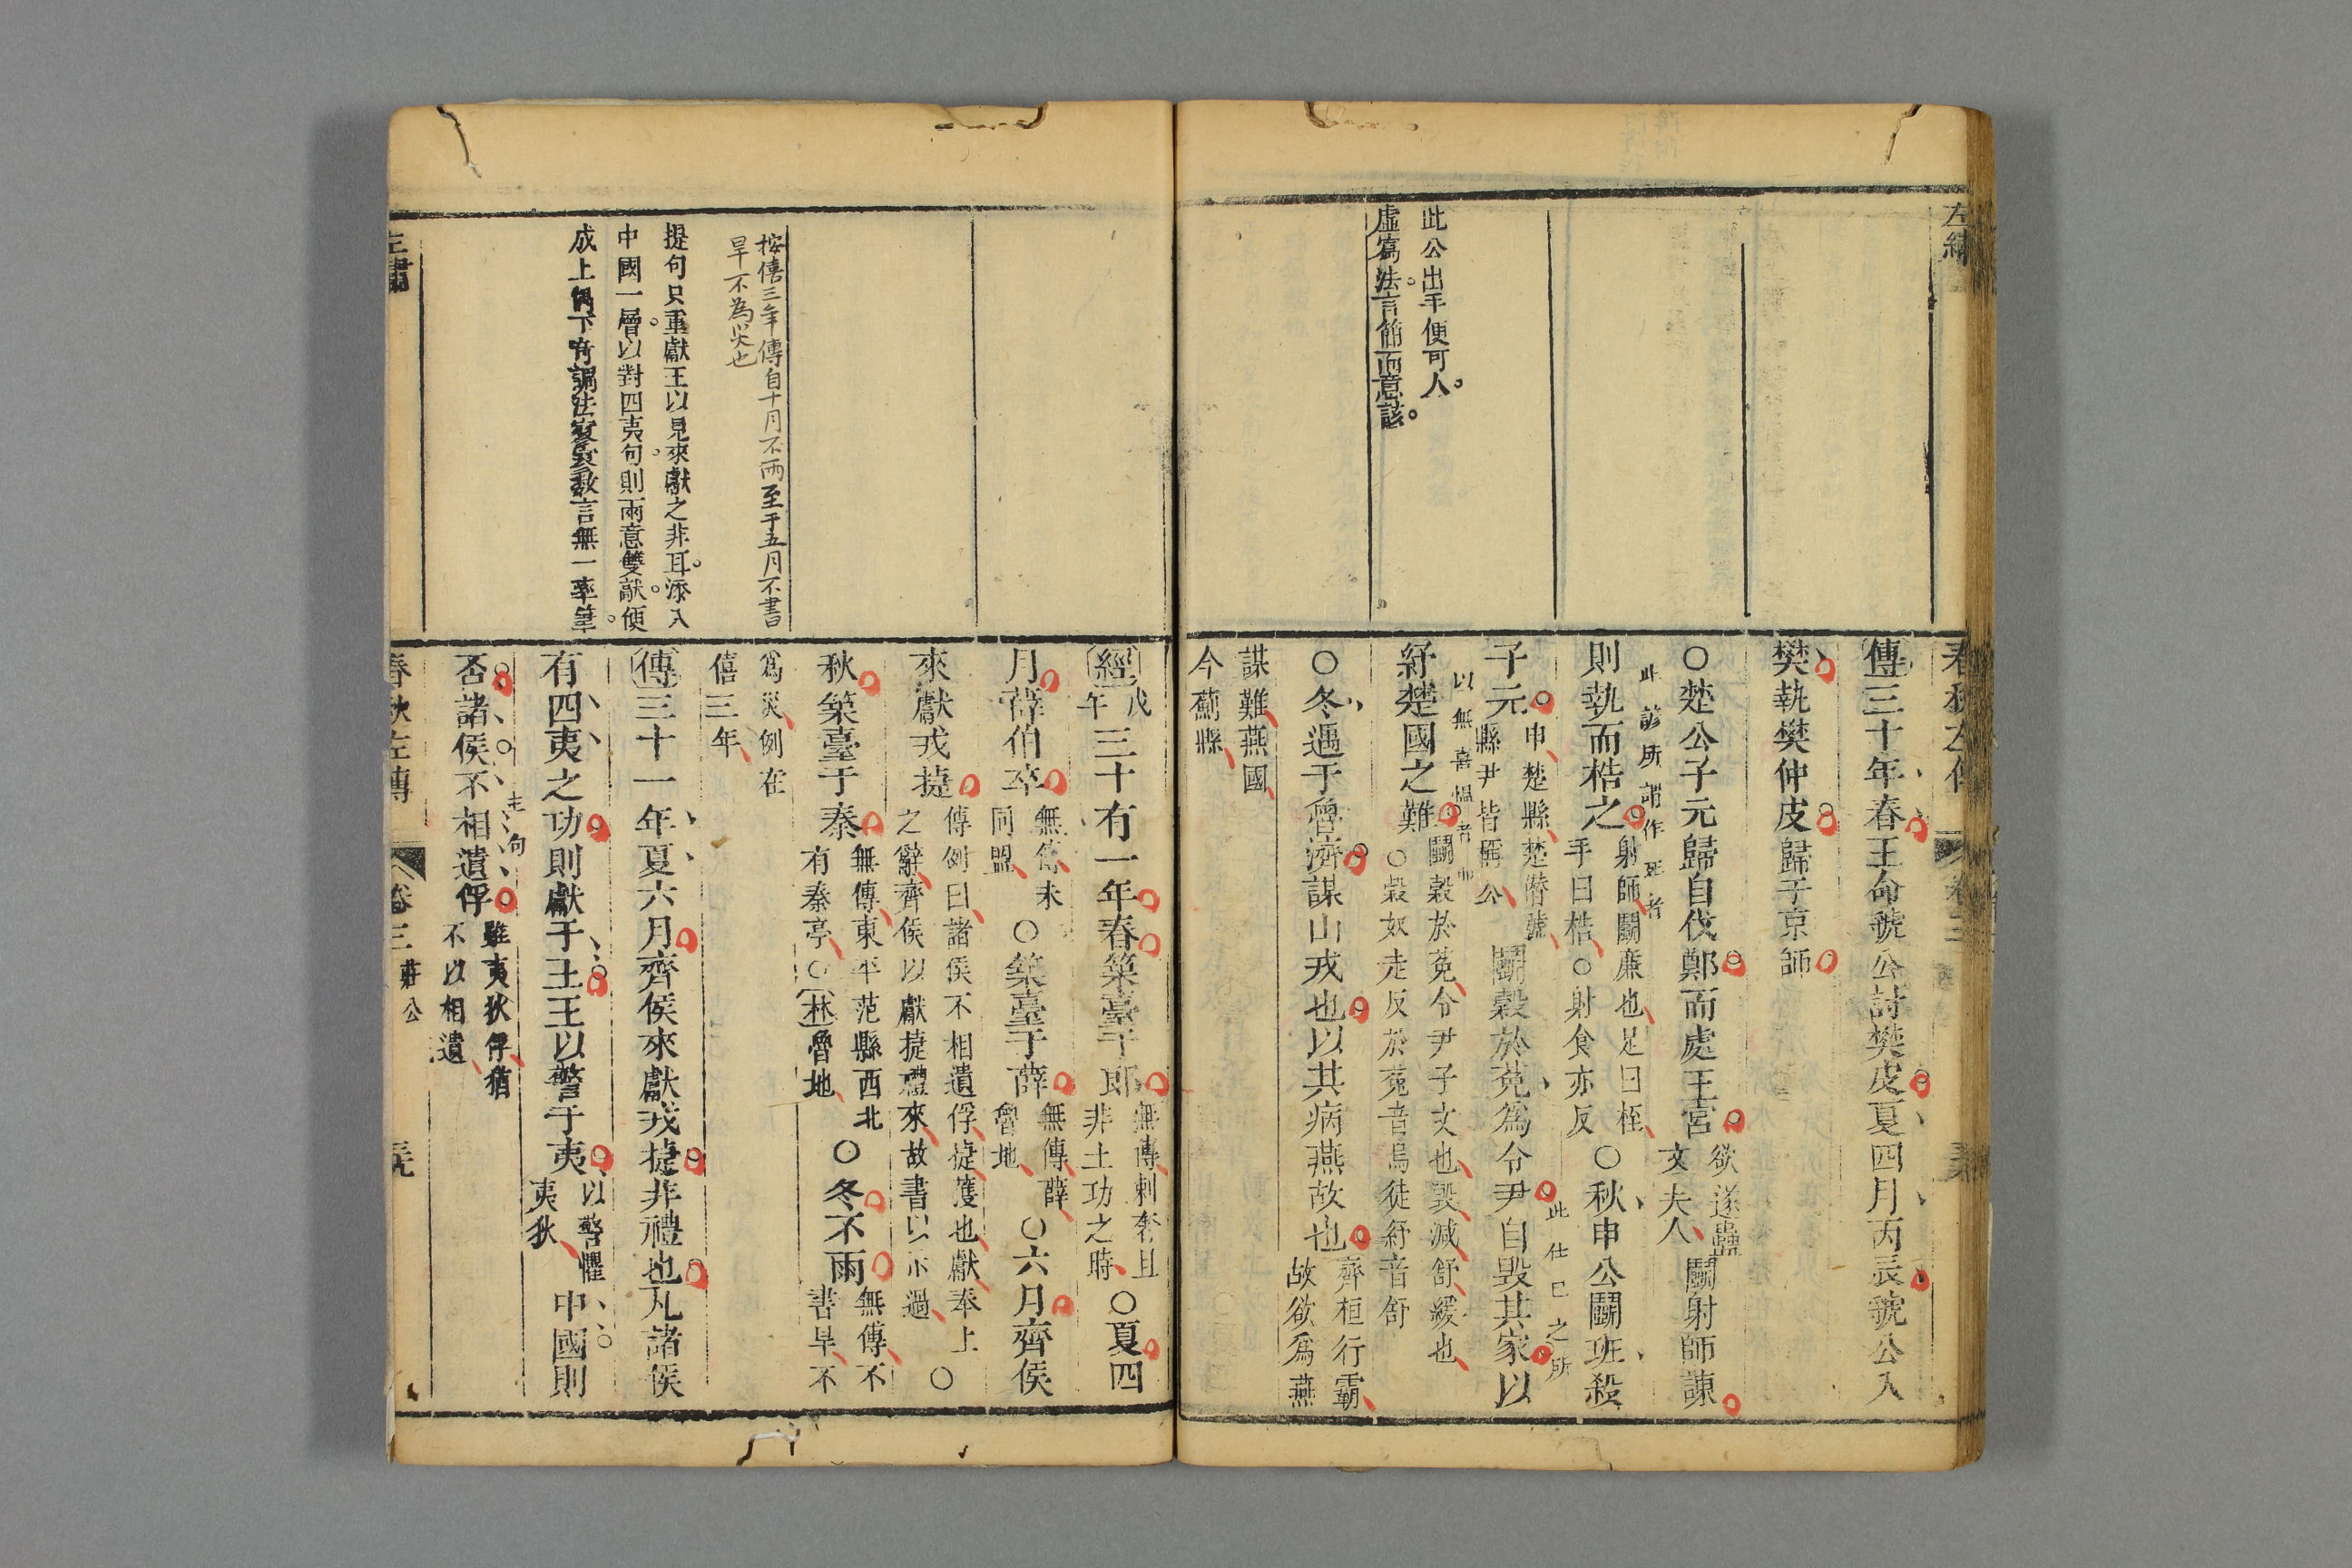 左繡
此公出手便可人
虛寫法言簡而意該
春秋左傳
卷三
傳三十年春王命虢公討樊皮夏四月丙辰虢公入
樊執樊仲皮歸于京師
○楚公子元歸自伐鄭而處王宮
欲遂蠱
文夫人
鬬射師諫
此諺所謂作死者
則執而梏之
射師鬬廉也足曰桎
手曰梏○射食亦反
○秋申公鬬班殺
子元
申楚縣楚僭號
縣尹皆稱公
鬬穀於菟爲令尹自毀其家以
此仕已之所
以無喜慍者
紓楚國之難
鬬穀於菟令尹子文也毀減紓緩也
○穀奴走反於菟音烏徒紓音舒
○冬遇于魯濟謀山戎也以其病燕故也
齊桓行霸
故欲爲燕
謀難燕國
今薊縣
按僖三年傳自十月不雨至于五月不書
旱不為災也
提句只重獻王以見來獻之非耳添入
中國一層以對四夷句則兩意雙獻便
成上偶下奇調法變裏數言無一率筆
經
戊
午
三十有一年春築臺于郎
無傳刺奢且
非土功之時
○夏四
月薛伯卒
無傳未
同盟
○築臺于薛
無傳薛
魯地
○六月齊侯
來獻戎捷
傳例曰諸侯不相遺俘捷獲也獻奉上
之辭齊侯以獻捷禮來故書以示過
○
秋築臺于秦
無傳東平范縣西北
有秦亭○林魯地
○冬不雨
無傳不
書旱不
爲災例在
僖三年
傳三十一年夏六月齊侯來獻戎捷非禮也凡諸侯
有四夷之功則獻于王王以警于夷
以警懼
夷狄
中國則
否諸侯不相遺俘
主句
雖夷狄俘猶
不以相遺
左繡
春秋左傳
卷三
莊公